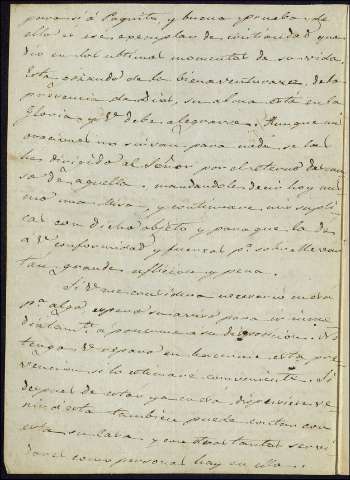 para si á Paquita, y buena prueba de
ello es ese ejemplar de cristiandad que
dio en los ultimos momentos de su vida.
Está gozando de la bienaventuranza, de la
presencia de Dios, su alma está en la
Gloria y Vd debe alegrarse. Aunque mis
oraciones no sirvan para nada, se las
he dirigido al Señor por el eterno descan
so de aquella, mandandole decir hoy mis
mo una misa, y continuaré mis supli
cas con dicho objeto y para que la dé
á Vd conformidad y fuerzas pª sobrellevar
tan grande afliccion y pena.
Si Vd me considera necesario en esa
pª algo espero su aviso para ir inme
diatamte á ponerme a su disposicion. No
tenga Vd reparo en hacerme esta pre
vencion si lo estimare conveniente. Si
despues de estar ya en esa dispusiere ve
nir á esta tambien puede contar con
esta su casa y con constantes servi
dores como personas hay en ella.